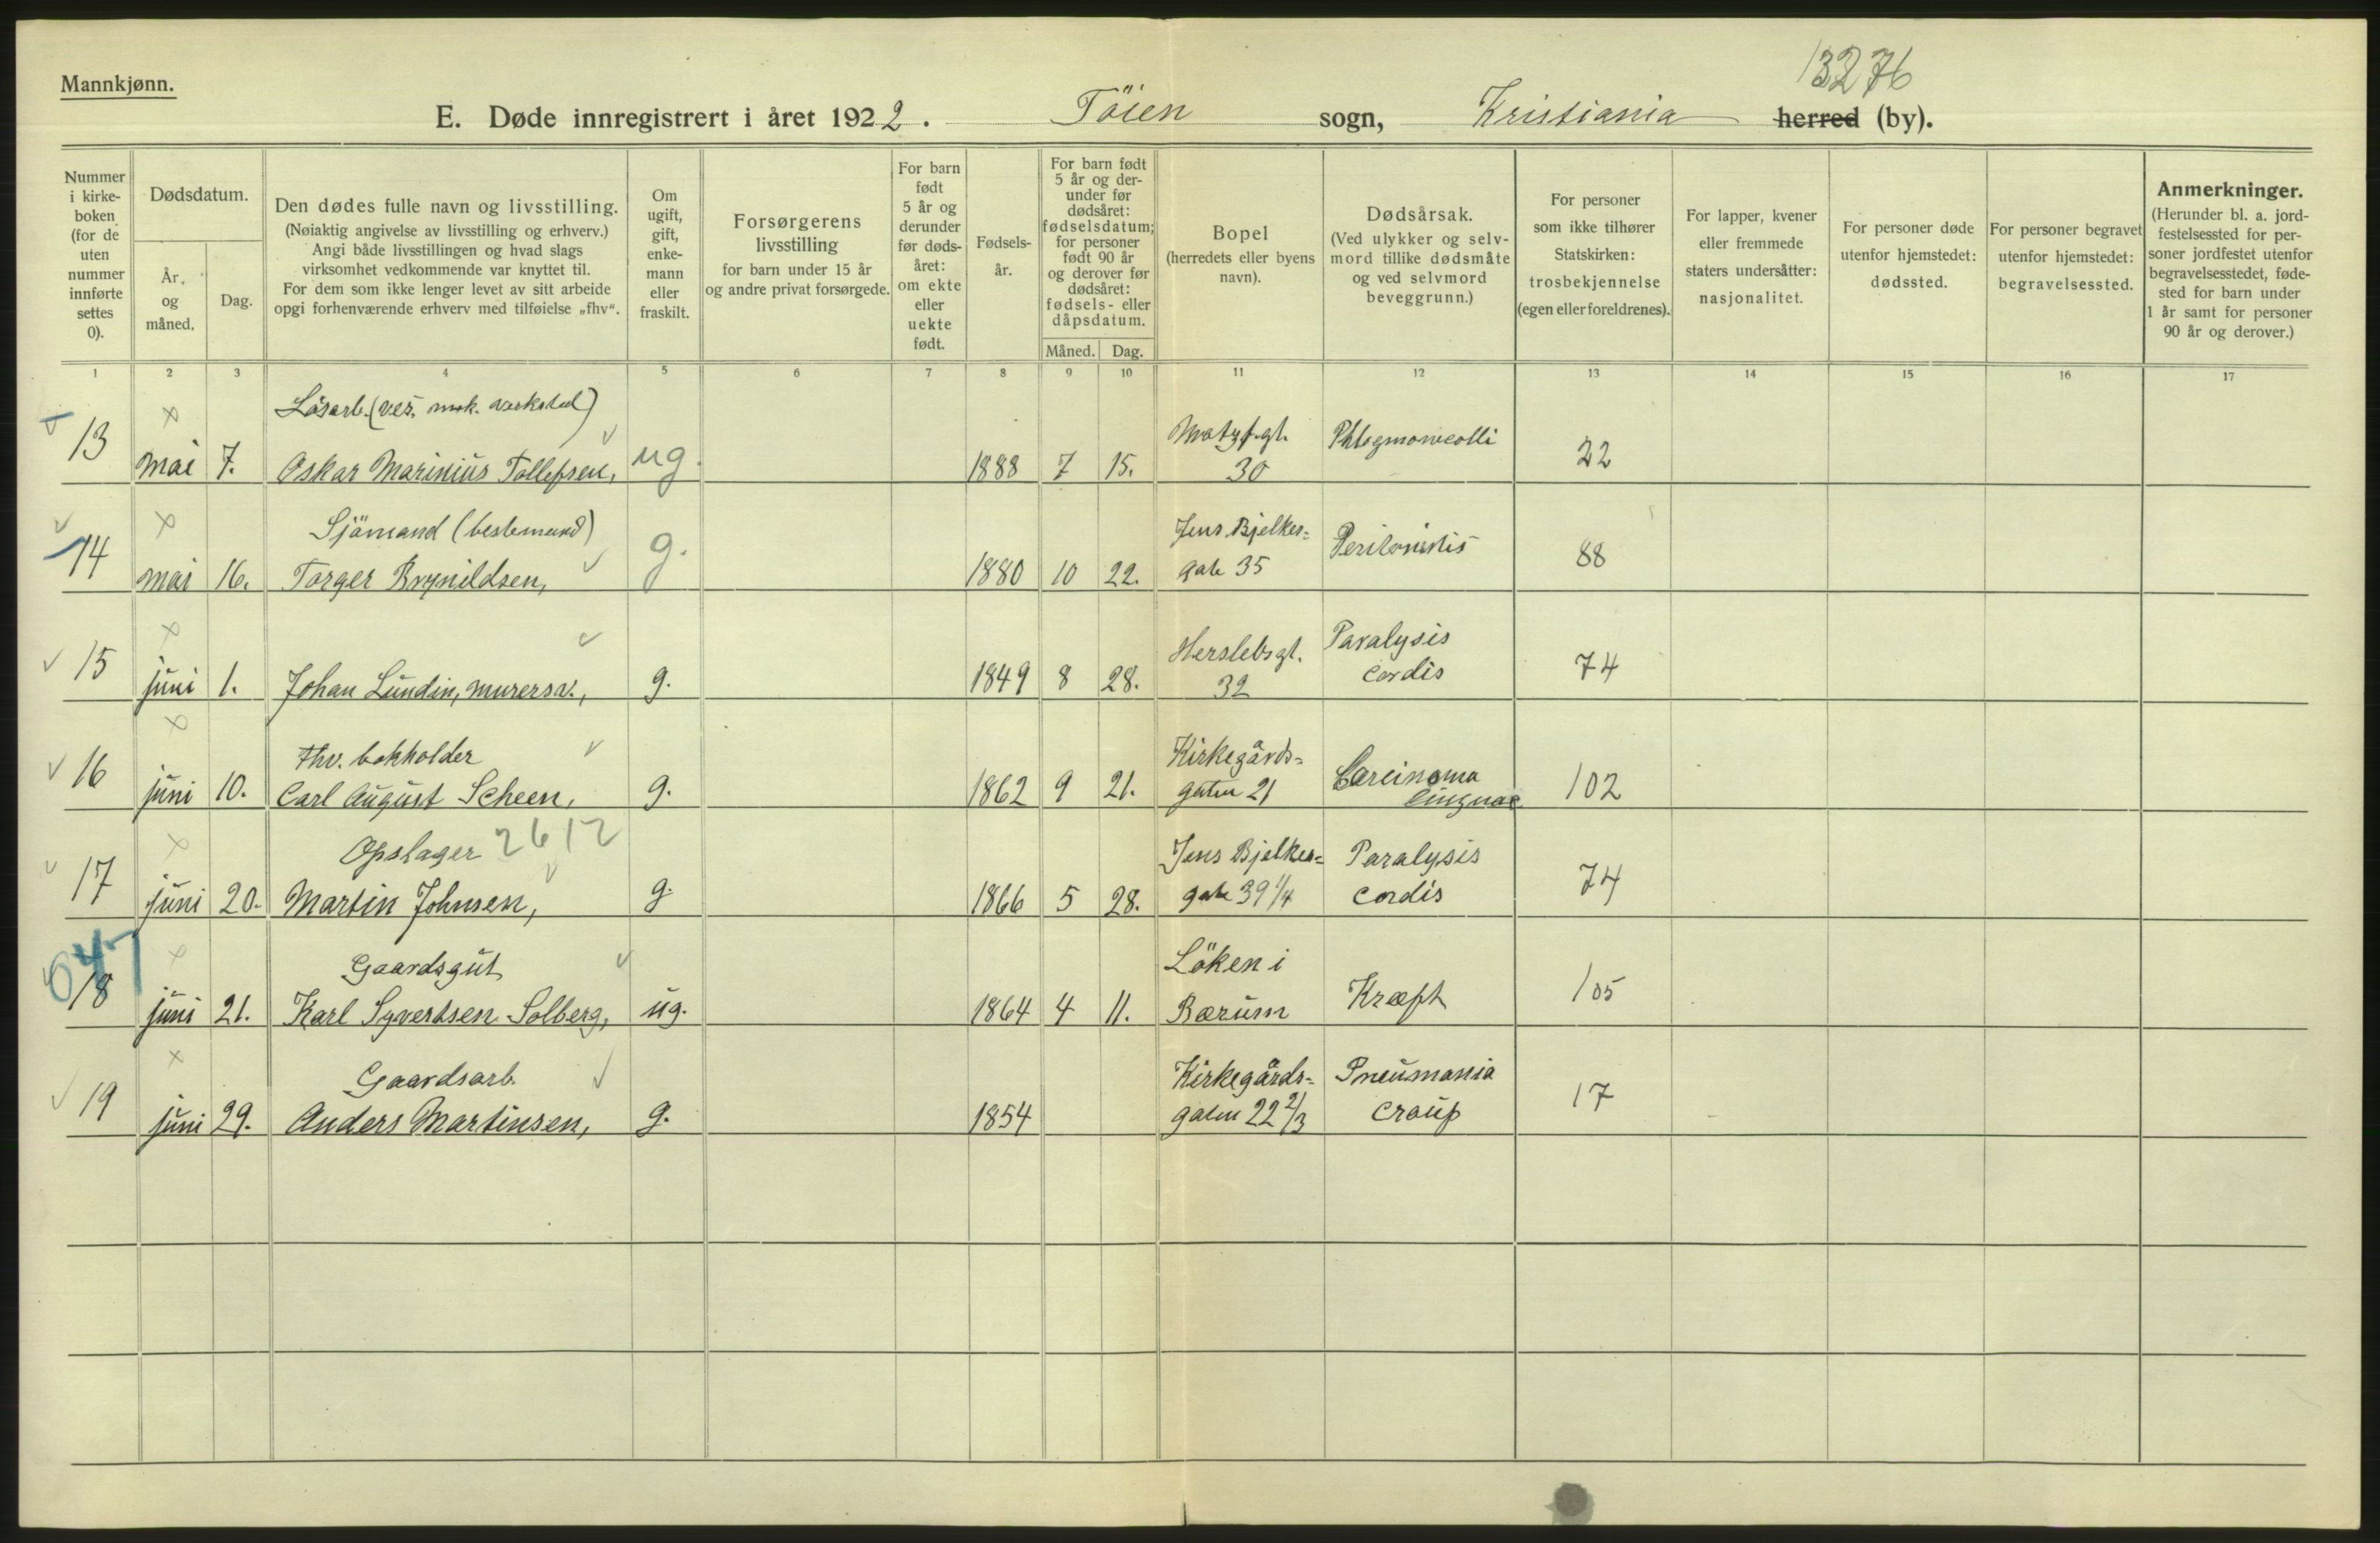 13276
Mannkjønn.
E. Døde innregistrert i året 1922. Töien sogn, Kristiania herred (by).
Nummer i kirke-boken (for de uten nummer innførte settes 0).
Dødsdatum.
År og måned.
Dag.
Den dødes fulle navn og livsstilling.
(Nøiaktig angivelse av livsstilling og erhverv.)
Angi både livsstillingen og hvad slags
virksomhet vedkommende var knyttet til.
For dem som ikke lenger levet av sitt arbeide
opgi forhenværende erhverv med tilføielse „fhv“.
Om ugift, gift, enke-mann eller fraskilt.
Forsørgerens livsstilling
for barn under 15 år
og andre privat forsørgede.
For barn født 5 år og derunder før døds-året: om ekte eller uekte født.
Fødsels-år.
For barn født 5 år og der-under før dødsåret: fødselsdatum; for personer født 90 år og derover før dødsåret: fødsels- eller dåpsdatum.
Måned. Dag.
Bopel
(herredets eller byens navn).
Dødsårsak.
(Ved ulykker og selv-mord tillike dødsmåte og ved selvmord beveggrunn.)
For personer som ikke tilhører Statskirken: trosbekjennelse (egen eller foreldrenes).
For lapper, kvener eller fremmede staters undersåtter: nasjonalitet.
For personer døde utenfor hjemstedet: dødssted.
For personer begravet utenfor hjemstedet: begravelsessted.
Anmerkninger.
(Herunder bl. a. jord-festelsessted for per-soner jordfestet utenfor begravelsesstedet, føde-sted for barn under 1 år samt for personer 90 år og derover.)
1 2 3 4 5 6 7 8 9 10 11 12 13 14 15 16 17
Lösarb. (mek. verksted)
13 mai 7. Oskar Marinius Tollefsen, ug. 1888 7 15. 30 22
Sjömand (bestemand) Jens Bjelkes=
14 mai 16. Torger Brynildsen, g. 1880 10 22. gate 35 Peritonitis 88
Herslebsgt. Paralysis
15 juni 1. Johan Lundin, murersv., g. 1849 8 28. 32 cordis 74
Fhv. bokholder Kirkegårds= Carcinoma
16 juni 10. Carl August Scheen, g. 1862 9 21. gaten 21 linguae 102
Opslager 2612 Jens Bjelkes= Paralysis
17 juni 20. Martin Johnsen, g. 1866 5 28. gate 39 1/4 cordis 74
647 Gaardsgut Löken i
18 juni 21. Karl Syvertsen Solberg, ug. 1864 4 11. Bærum Kræft 105
Gaardsarb. Kirkegårds= Pneumonia
19 juni 29. Anders Martinsen, g. 1854 gaten 22 2/3 croup 17